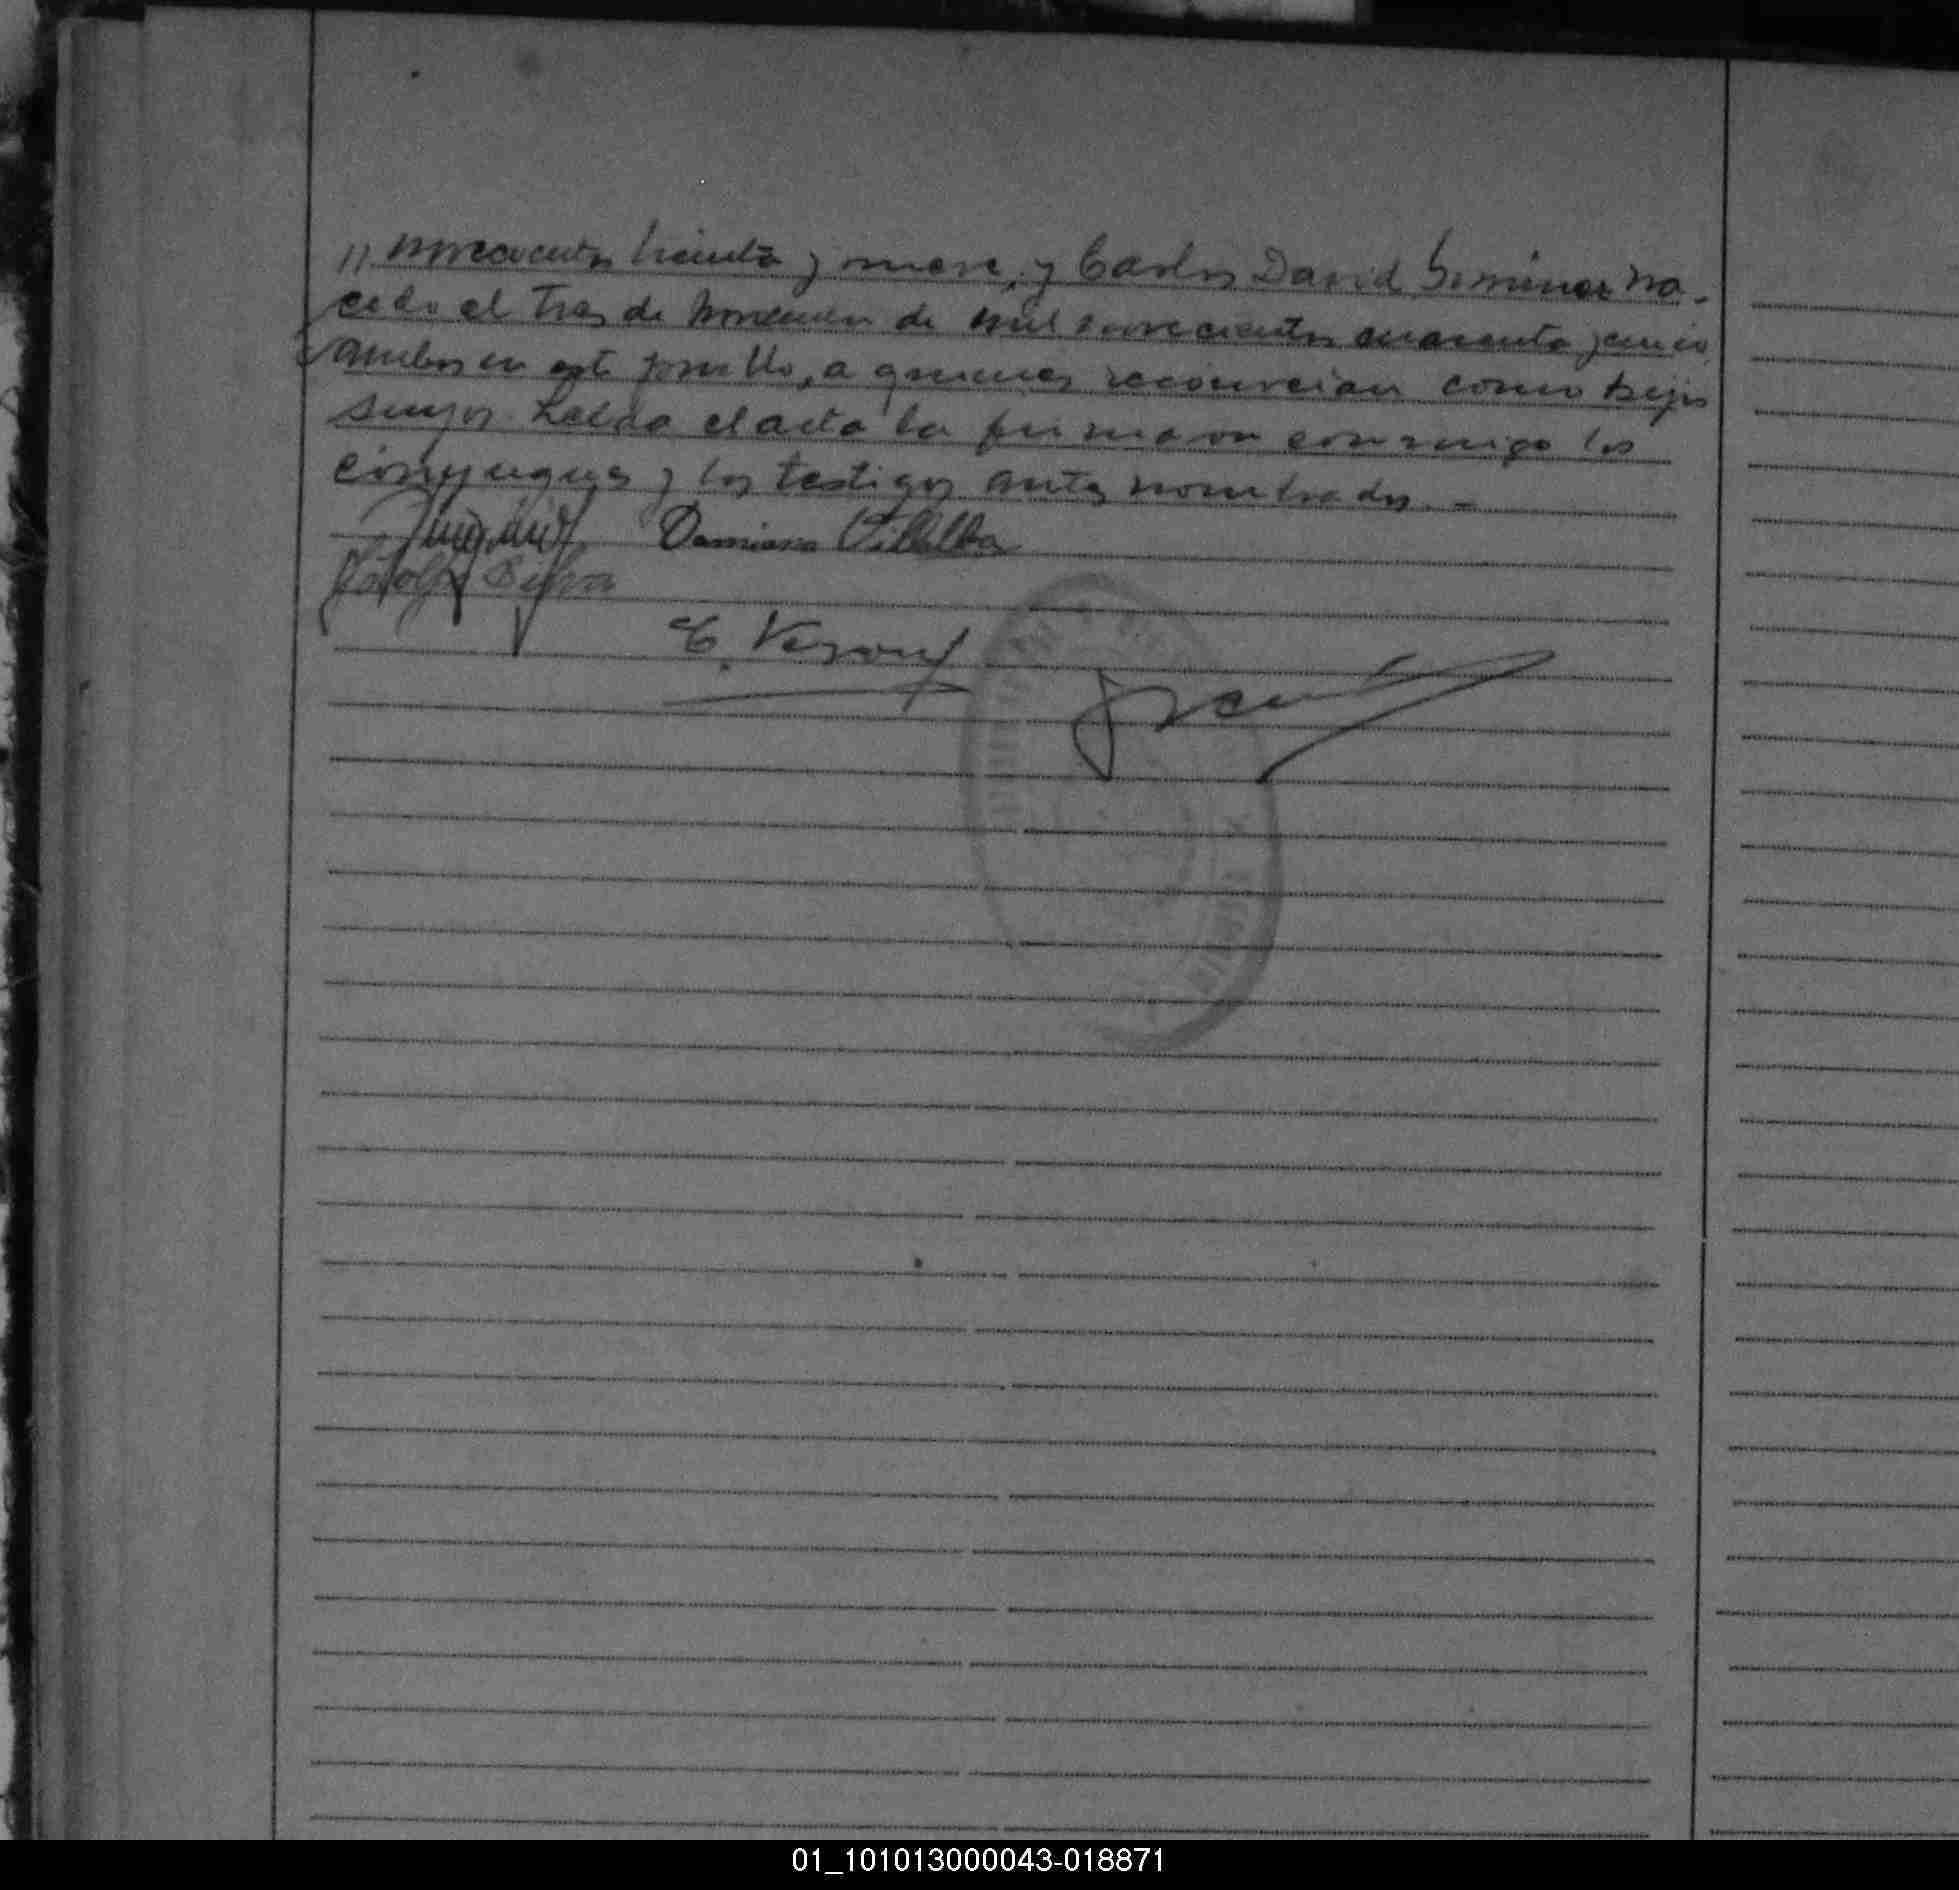 // novecientos treinta y nueve, y Carlos David Jimenez na-
cido el tres de noviembre de mil novecientos cuarenta y cinco,
ambos en este pueblo, a quienes reconocian como hijos
suyos. Leida el acta la firmaron conmigo los
conyuges y los testigos antes nombrados. -
Damiana Villalba
Adolfo Silva
E.
01_101013000043-018871